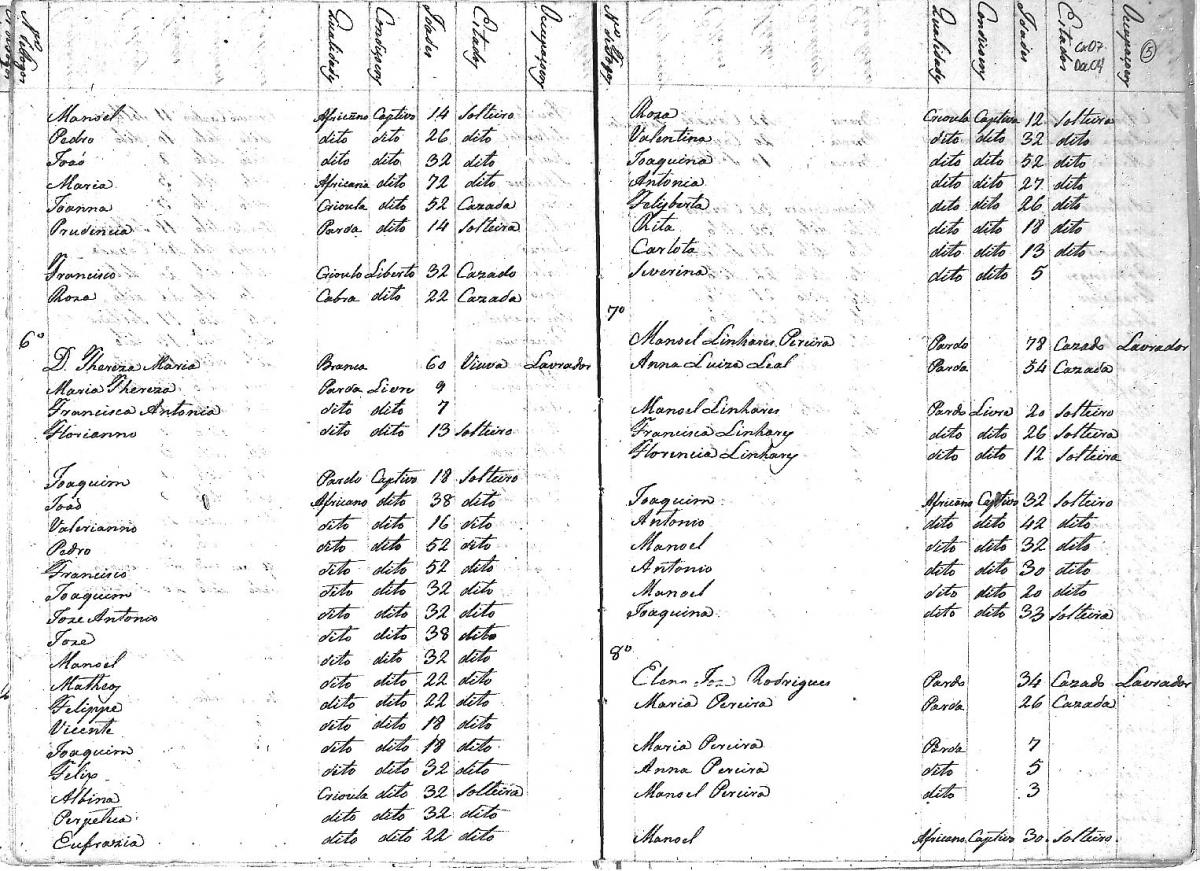 Nos de Fogos
Qualidades
Condisoes
Idades
Estados
Occupasoes
Manoel Africano Captivo 14 Solteiro
Pedro dito dito 26 dito
João dito dito 32 dito
Maria Africana dito 72 dito
Joanna Crioula dito 52 Cazada
Prudencia Parda dito 14 Solteira
Francisco Crioulo Liberto 32 Cazado
Roza Cabra dito 22 Cazada
6º
D. Thereza Maria Branca 60 Viuva Lavrador
Maria Thereza Parda Livre 9
Francisca Antonia dito dito 7
Florianno dito dito 13 Solteiro
Joaquim Pardo Captivo 18 Solteiro
João Africano dito 38 dito
Valerianno dito dito 16 dito
Pedro dito dito 52 dito
Francisco dito dito 52 dito
Joaquim dito dito 32 dito
Joze Antonio dito dito 32 dito
Joze dito dito 38 dito
Manoel dito dito 32 dito
Matheos dito dito 22 dito
Felippe dito dito 22 dito
Vicente dito dito 18 dito
Joaquim dito dito 18 dito
Felix dito dito 32 dito
Albina Crioula dito 32 Solteira
Perpetua dito dito 32 dito
Eufrazia dito dito 22 dito
Nos de Fogos
Qualidades
Condisoes
Idades
Estados
Occupasoes
Cx07
Doc04
5
Roza Crioula Captiva 12 Solteira
Valentina dito dito 32 dito
Joaquina dito dito 52 dito
Antonia dito dito 27 dito
Felisberta dito dito 26 dito
Rita dito dito 18 dito
Carlota dito dito 13 dito
Siverina dito dito 5
7º
Manoel Linhares Pereira Pardo 78 Cazado Lavrador
Anna Luiza Leal Parda 54 Cazada
Manoel Linhares Pardo Livre 20 Solteiro
Francisca Linhares dito dito 26 Solteira
Florencia Linhares dito dito 12 Solteira
Joaquim Africano Captivo 32 Solteiro
Antonio dito dito 42 dito
Manoel dito dito 32 dito
Antonio dito dito 30 dito
Manoel dito dito 20 dito
Joaquina dito dito 33 Solteira
8º
Rodrigues Pardo 34 Cazado Lavrador
Maria Pereira Parda 26 Cazada
Maria Pereira Parda 7
Anna Pereira dito 5
Manoel Pereira dito 3
Manoel Africano Captivo 30 Solteiro